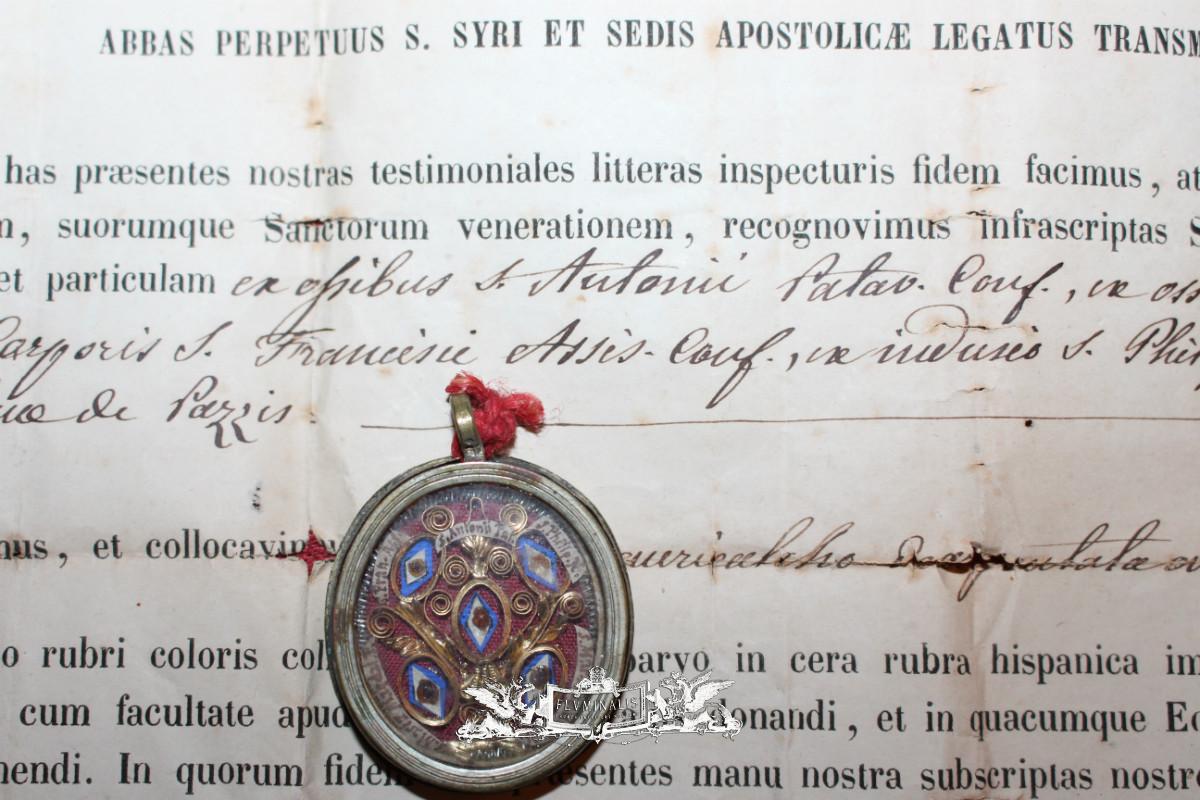 ABBAS PERPETUUS S. SYRI ET SEDIS APOSTOLICÆ LEGATUS TRANSM
has præsentes nostras testimoniales litteras inspecturis fidem facimus, at
m, suorumque Sanctorum venerationem, recognovimus infrascriptas S
et particulam ex ossibus S. Antonii Patav. Conf., ex oss
Corporis S. Francisci Assis. Conf., ex indusio S. Phi
de Pazzis.
mus, et collocavimus
o rubri coloris col parvo in cera rubra hispanica im
cum facultate apud onandi, et in quacumque Ec
nendi. In quorum fidem præsentes manu nostra subscriptas nostro
S. Antonii
FLUMINALIS